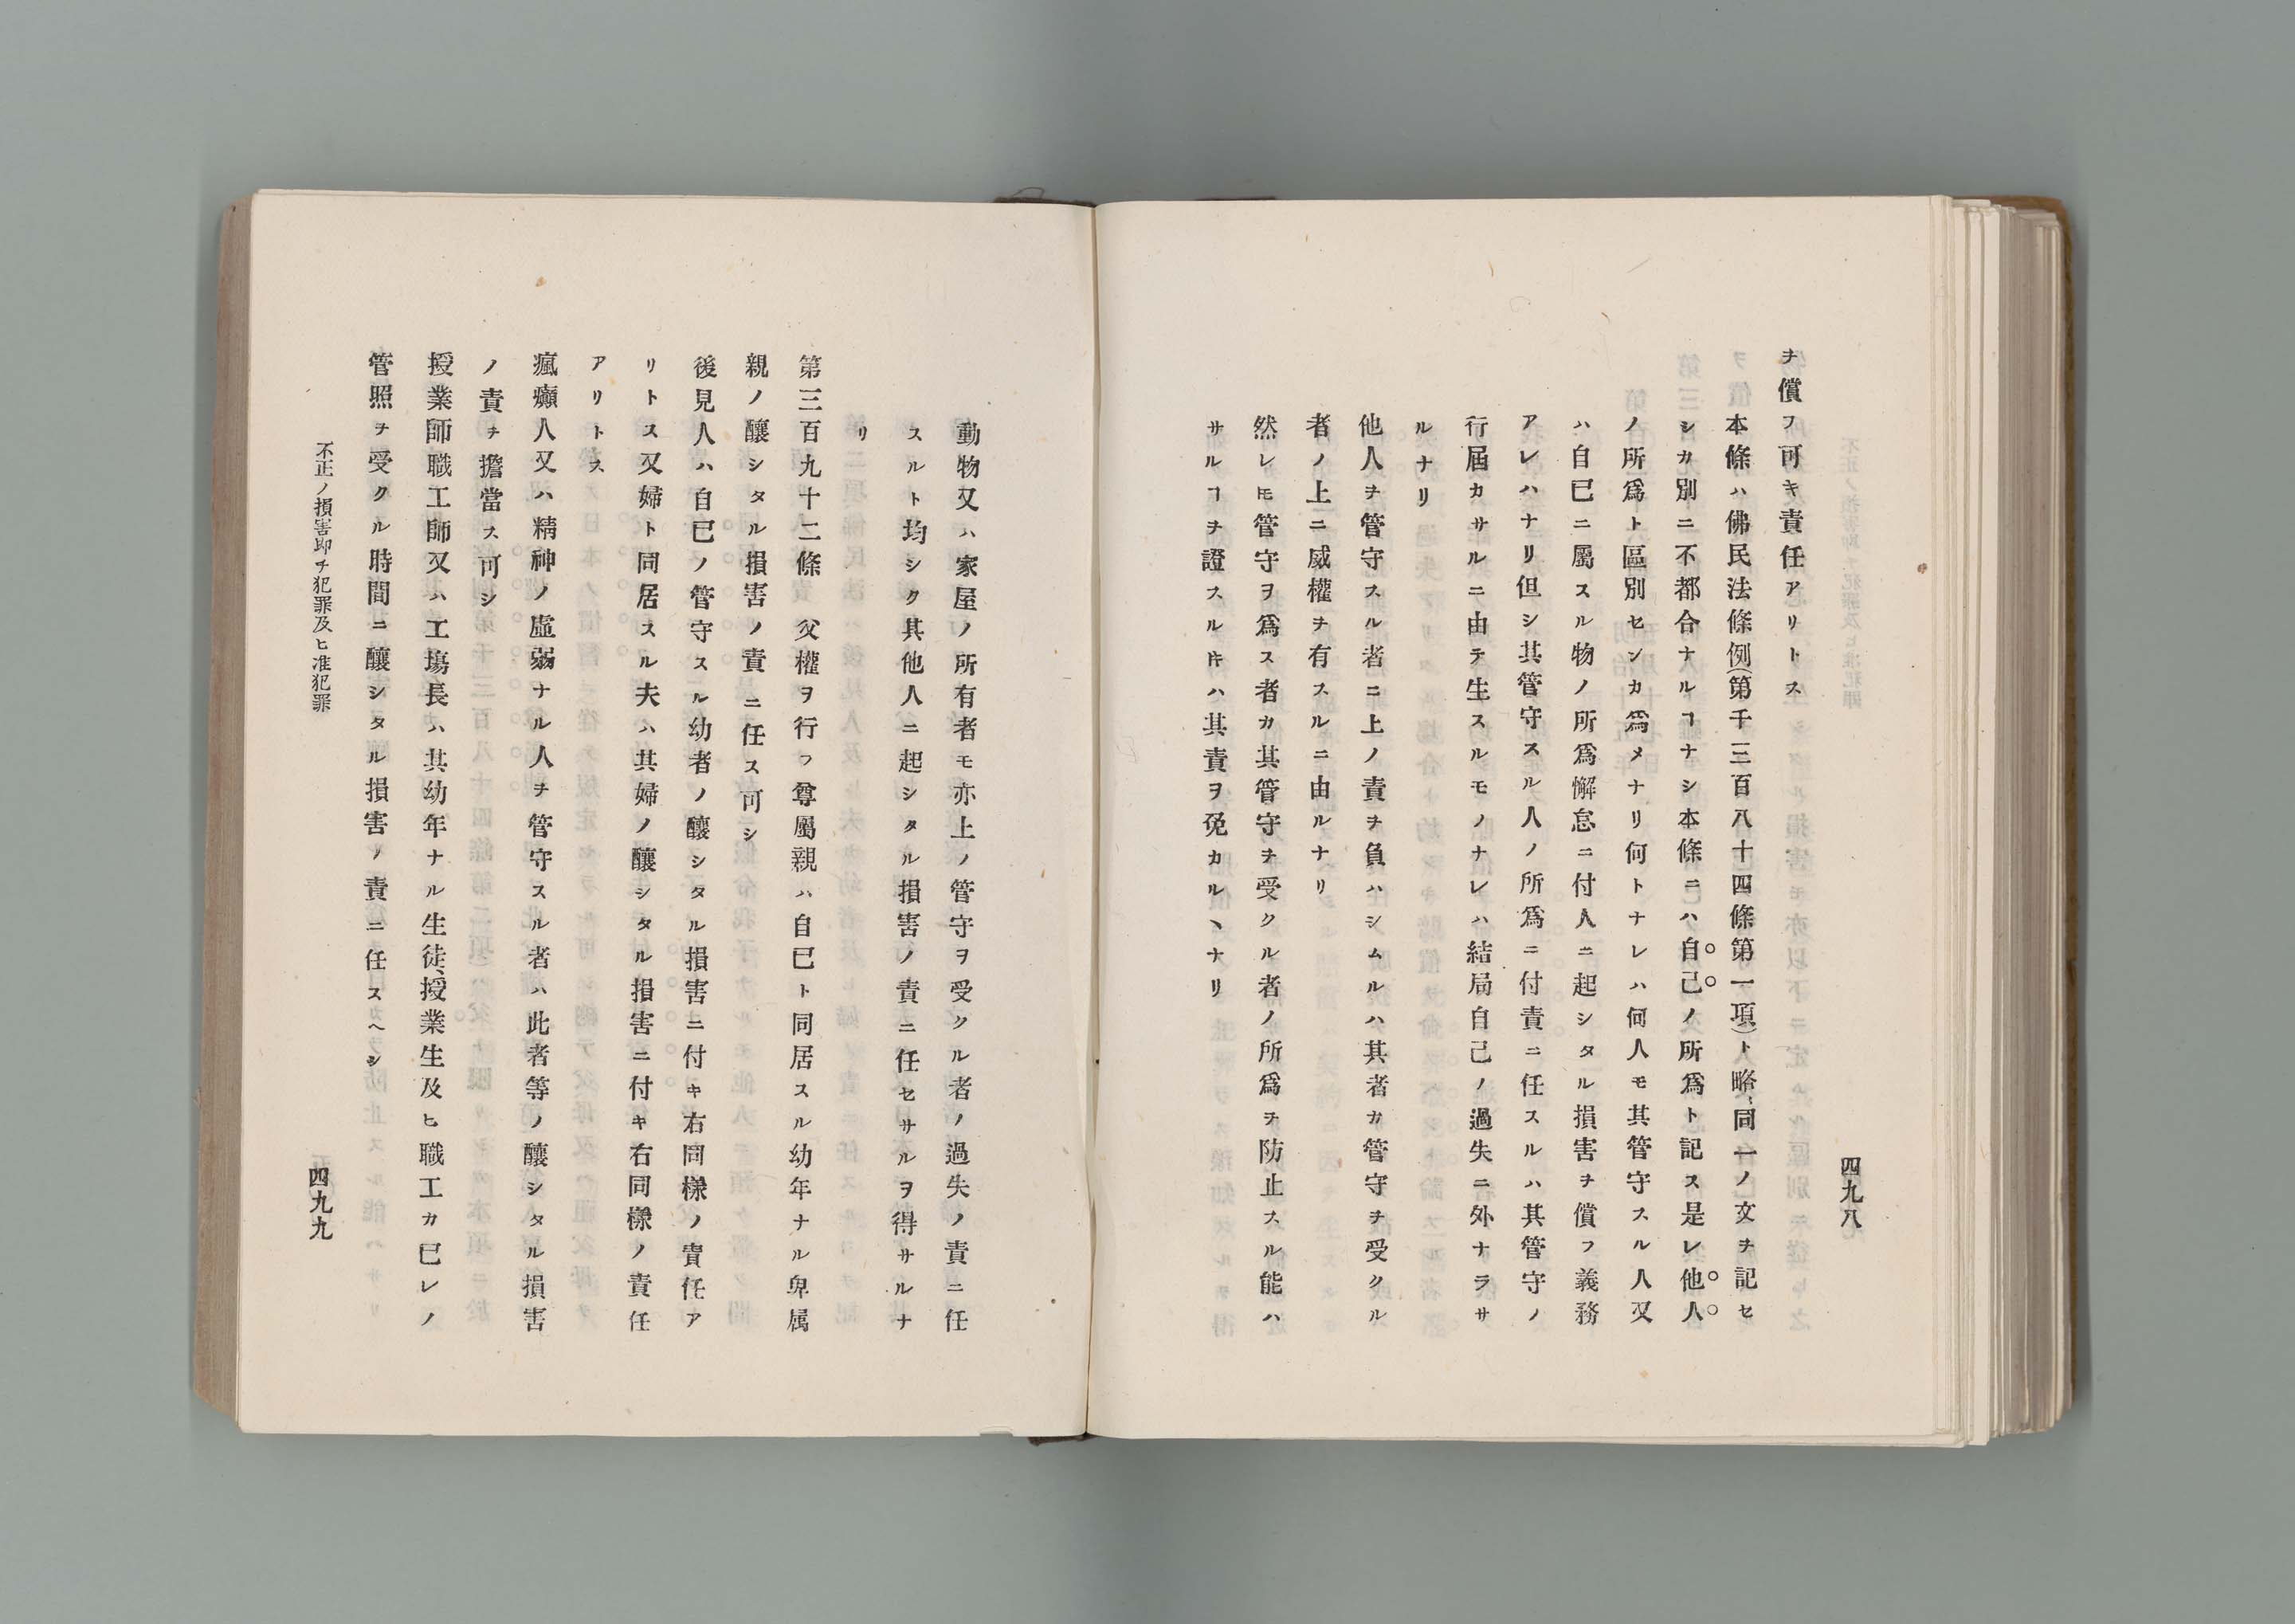 四九八
ヲ償フ可キ責任アリトス
本條ハ佛民法條例(第千三百八十四條第一項)ト略、同一ノ文ヲ記セ
シカ別ニ不都合ナルヿナシ本條ニハ自己ノ所爲ト記ス是レ他人
ノ所爲ト區別センカ爲メナリ何トナレハ何人モ其管守スル人又
ハ自已ニ屬スル物ノ所爲懈怠ニ付人ニ起シタル損害ヲ償フ義務
アレハナリ但シ其管守スル人ノ所爲ニ付責ニ任スルハ其管守ノ
行屆カサルニ由テ生スルモノナレハ結局自己ノ過失ニ外ナラサ
ルナリ
他人ヲ管守スル者ニ上ノ責ヲ負ハシムルハ其者カ管守ヲ受クル
者ノ上ニ威權ヲ有スルニ由ルナリ
然レ𪜈管守ヲ爲ス者カ其管守ヲ受クル者ノ所爲ヲ防止スル能ハ
サルヿヲ證スル片ハ其責ヲ免カルヽナリ
動物又ハ家屋ノ所有者モ亦上ノ管守ヲ受クル者ノ過失ノ責ニ任
スルト均シク其他人ニ起シタル損害ノ責ニ任セサルヲ得サルナ
リ
第三百九十二條　父權ヲ行フ尊屬親ハ自已ト同居スル幼年ナル卑属
親ノ釀シタル損害ノ責ニ任ス可シ
後見人ハ自已ノ管守スル幼者ノ釀シタル損害ニ付キ右同樣ノ責任ア
リトス又婦ト同居スル夫ハ其婦ノ釀シタル損害ニ付キ右同樣ノ責任
アリトス
瘋癲人又ハ精神ノ虛弱ナル人ヲ管守スル者ハ此者等ノ釀シタル損害
ノ責ヲ擔當ス可シ
授業師職工師又ハ工塲長ハ其幼年ナル生徒、授業生及ヒ職工カ已レノ
管照ヲ受クル時間ニ釀シタル損害ノ責ニ任スヘシ
不正ノ損害即チ犯罪及ヒ准犯罪
四九九